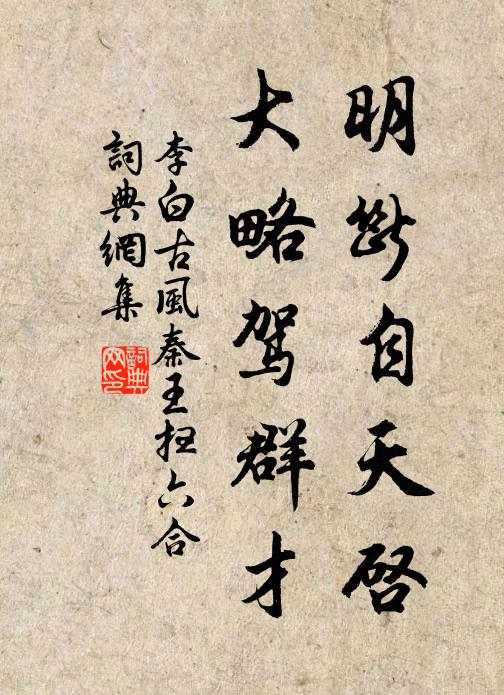 明斷自天啓
大略駕群才
李白古風秦王扫六合
詞典網集
詞典
网印